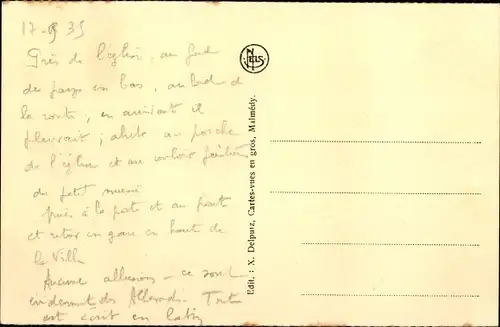 17-9 35
Près de l'église, au fond
du pays en bas, au bord de
la route, en arrivant il
pleuvait; abri au porche
de l'église et au
du petit musée
puis à la poste et au pont
et retour en gare en haut de
la ville
Aucune allusion - ce sont
évidemment des Allemands. Tout
est écrit en latin
NELS
Edit. : X. Delputz, Cartes-vues en gros, Malmédy.